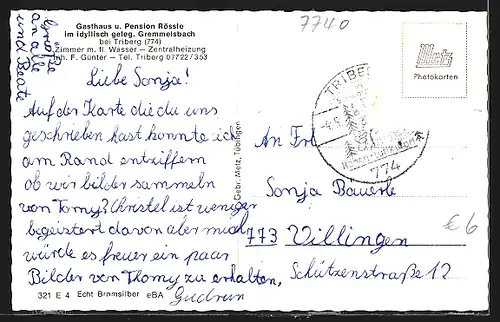 Gasthaus u. Pension Rössle
im idyllisch geleg. Gremmelsbach
bei Triberg (774)
Zimmer m. fl. Wasser – Zentralheizung
Inh. F. Günter – Tel. Triberg 07722/353
Grüße
an alle
und Beate
Liebe Sonja!
Auf der Karte die du uns
geschrieben hast konnte ich
am Rand entziffern
ob wir bilder sammeln
von Tomy? Christel ist weniger
begeistert davon aber mich
würde es freuen ein paar
Bilder von Thomy zu erhalten,
Gudrun
321 E 4 Echt Bromsilber eBA
Gebr. Metz, Tübingen
7740
Metz
Photokarten
TRIBE
774
An Frl
Sonja Bäuerle
773 Villingen
Schützenstraße 12
€ 6